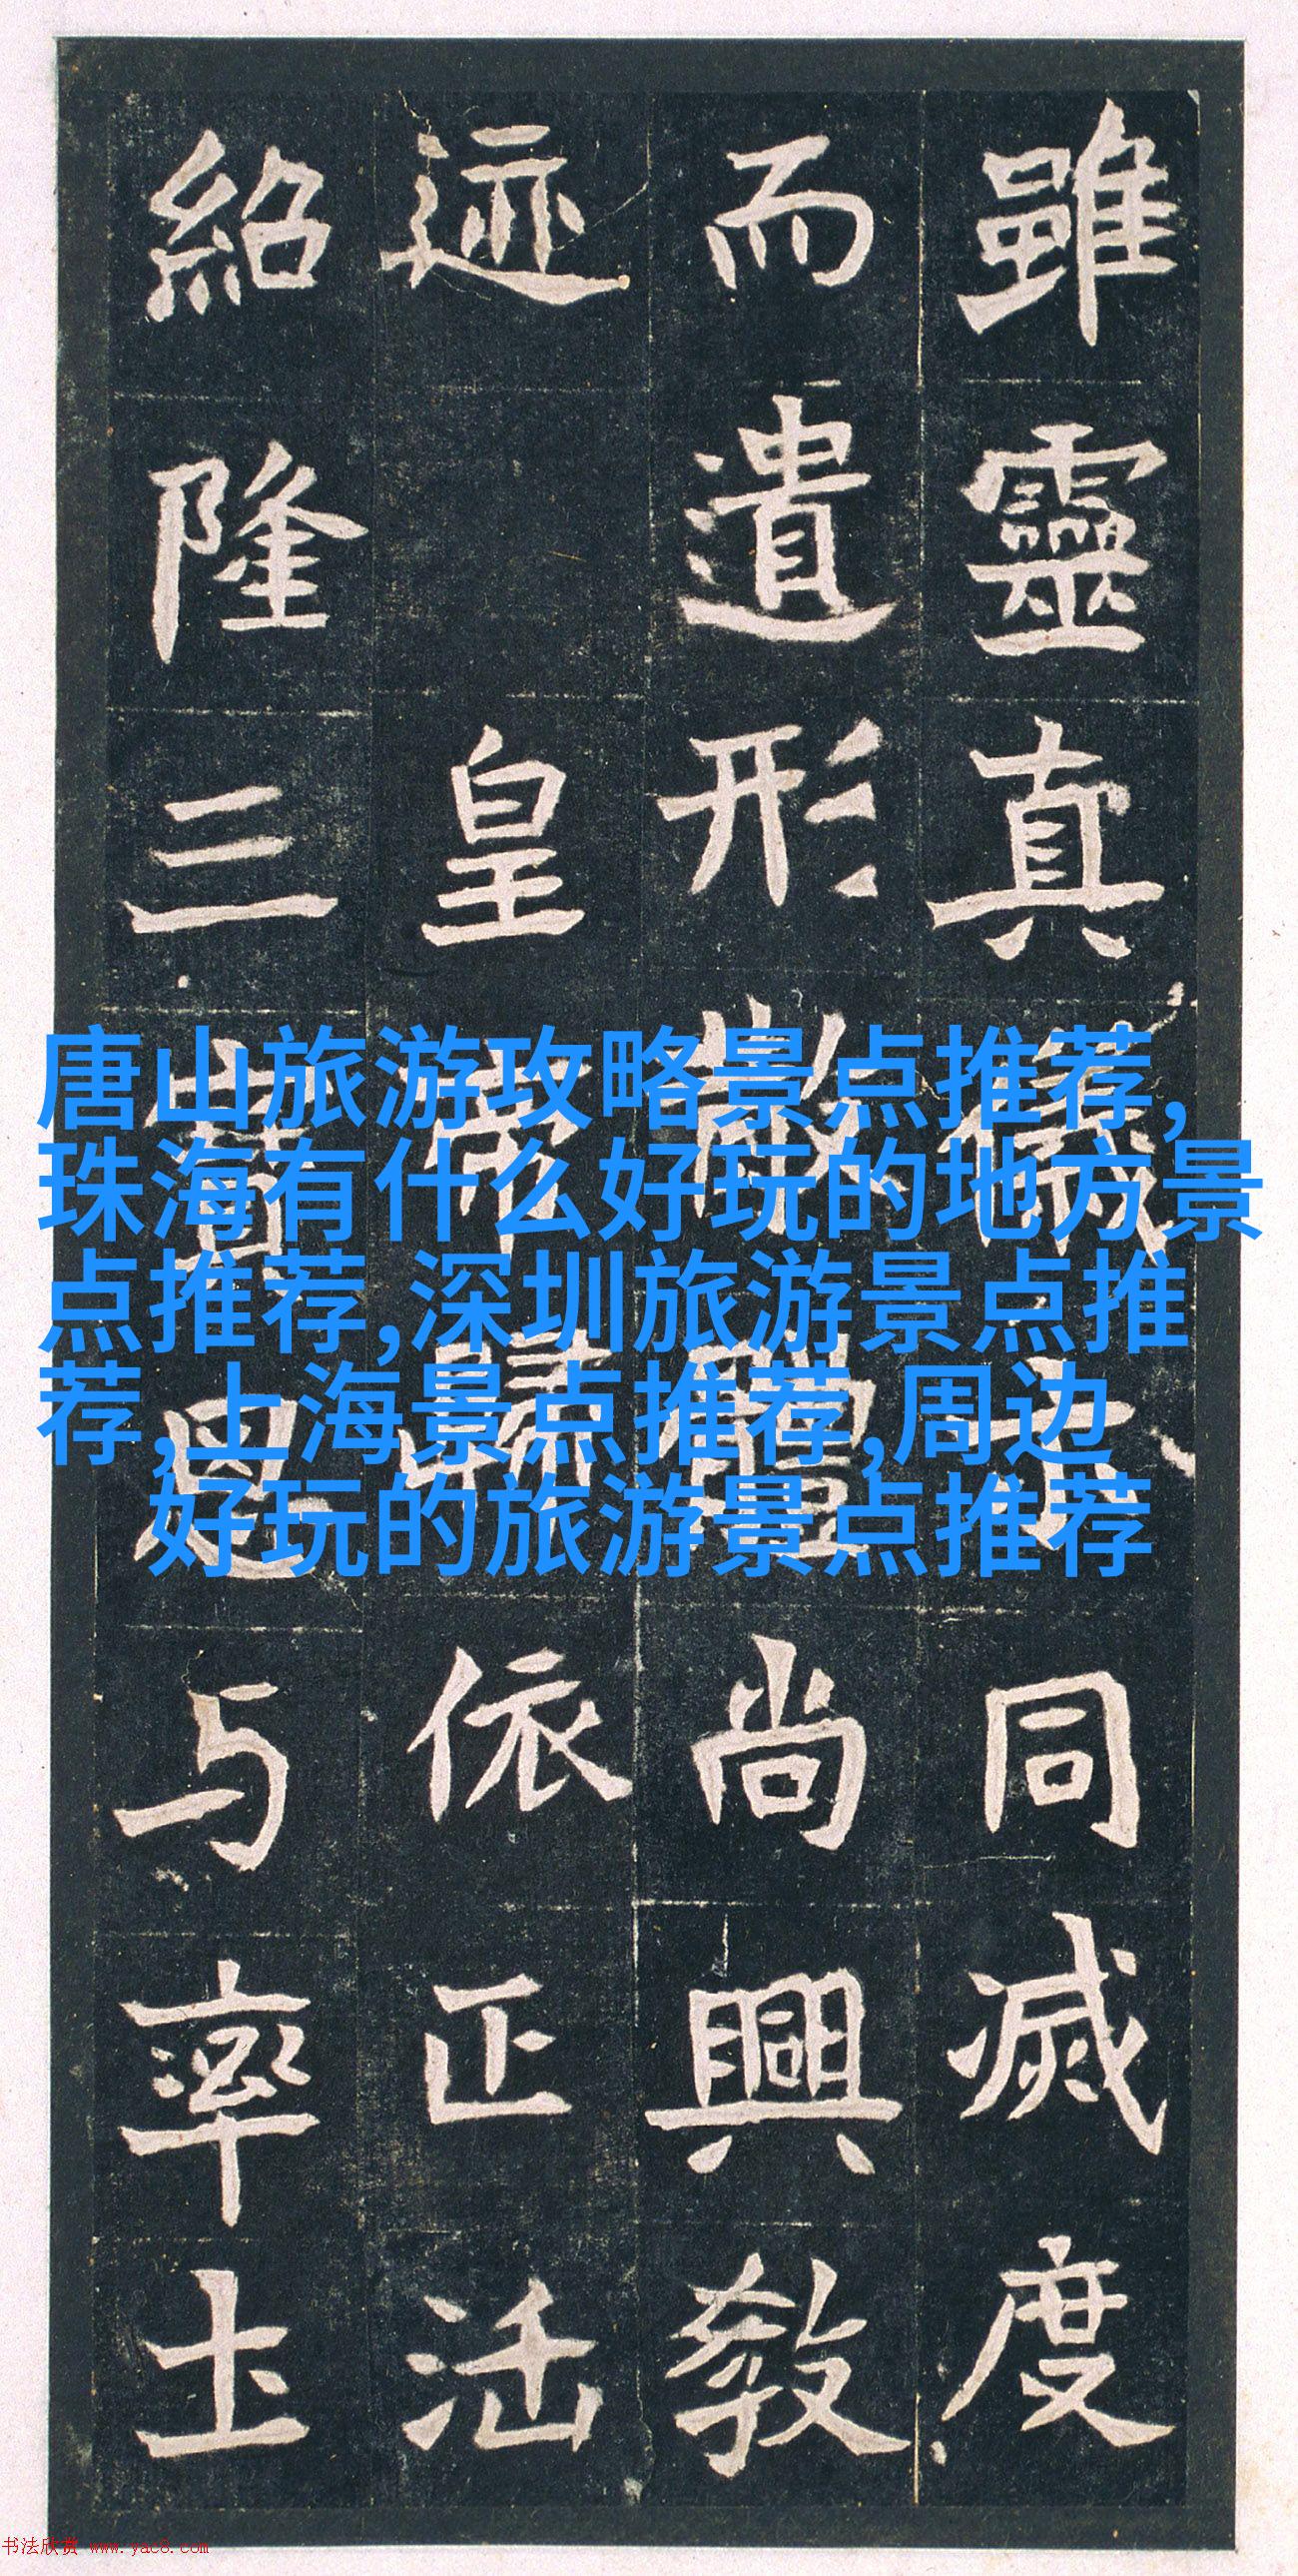 雖靈真儀同滅度
而遺形體尚興教
迹皇帝歸依正法
紹隆三寶思与率土
唐山旅游攻略景点推荐,
珠海有什么好玩的地方景
点推荐,深圳旅游景点推
荐,上海景点推荐,周边
好玩的旅游景点推荐
书法欣赏 www.yac8.com